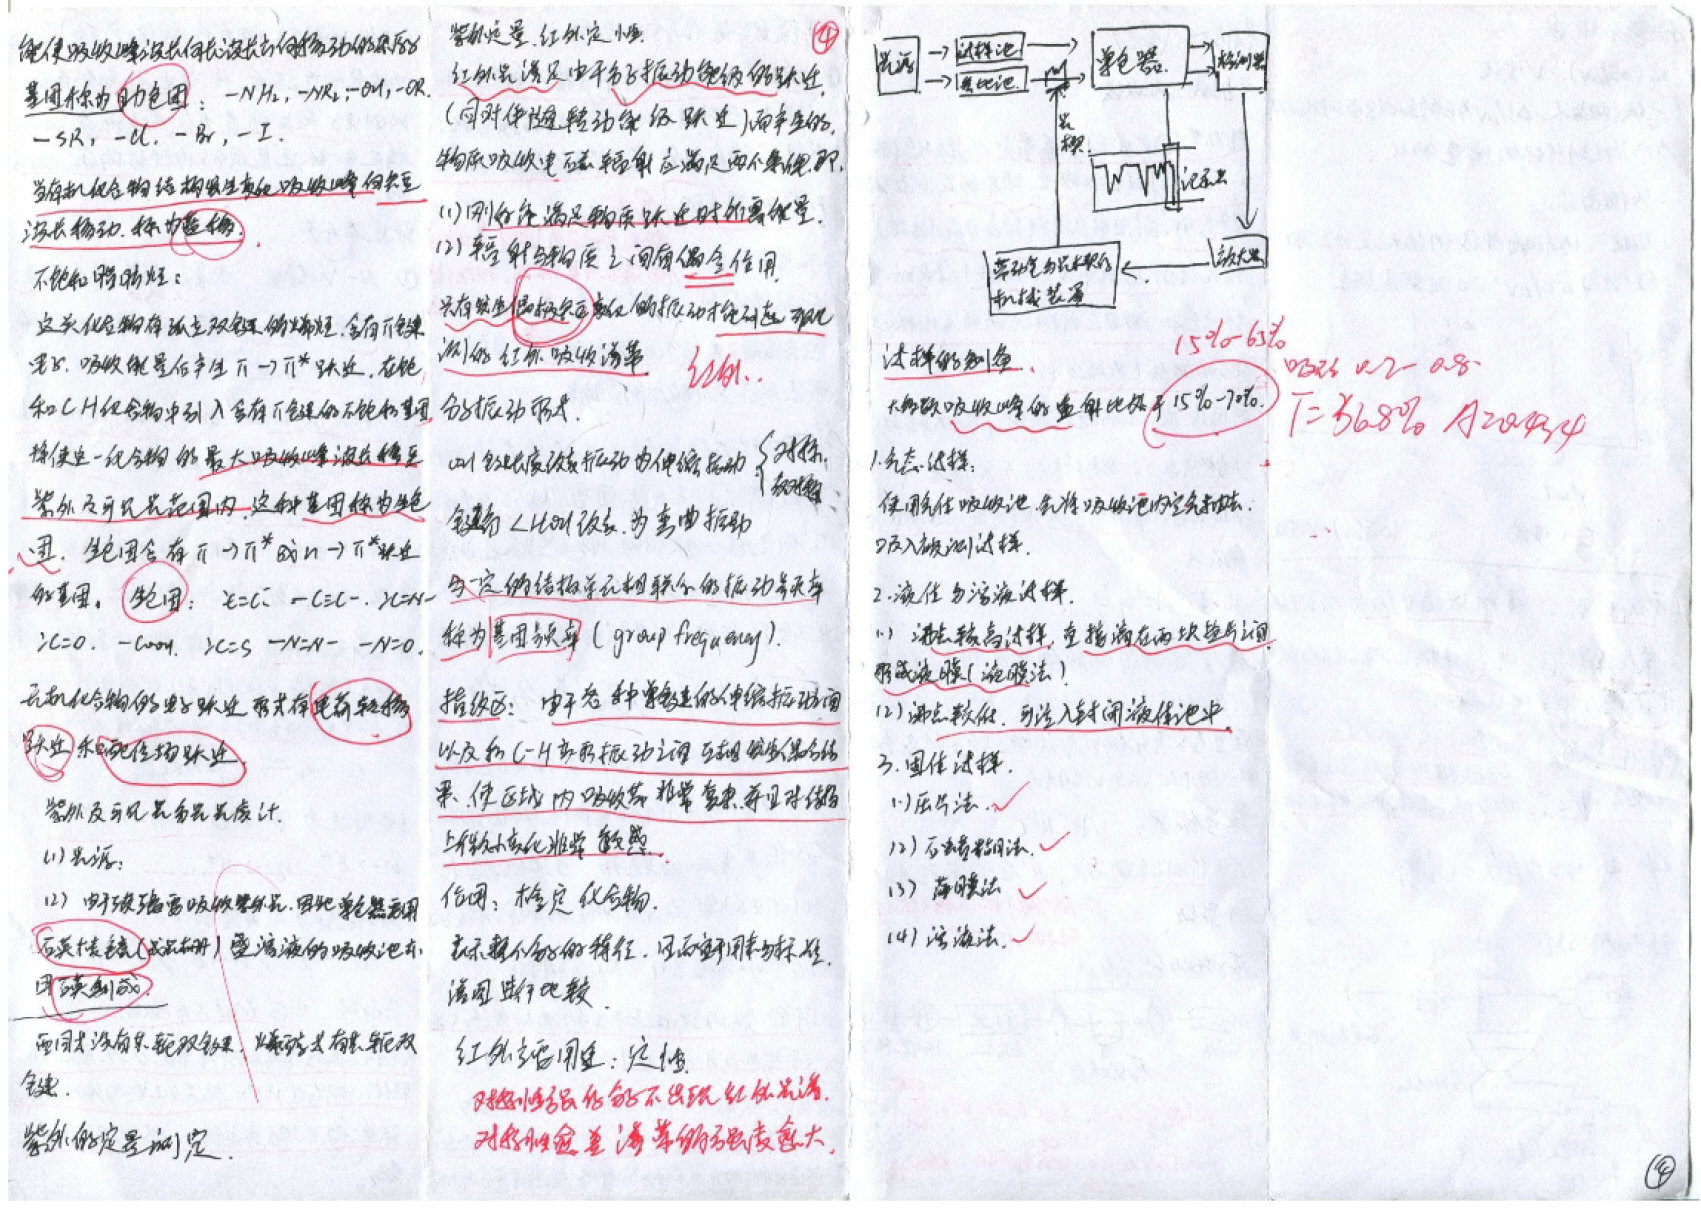 能使吸收峰波长向长波长方向移动的杂原子
基团称为助色团: -NH₂, -NR₂, -OH, -OR.
-SR, -Cl, -Br, -I.
当有机化合物结构发生变化吸收峰向长
波长移动. 称为红移.
不饱和脂肪烃:
这类化合物有孤立双键的烯烃. 含有π键
电子. 吸收能量后产生π→π*跃迁. 在饱
和CH化合物中引入含有π键的不饱和基团
将使这一化合物的最大吸收峰波长移至
紫外及可见光范围内. 这种基团称为生色
团. 生色团含有π→π*或n→π*跃迁
的基团. 生色团: >C=C< -C≡C-. >C=N-
>C=O. -COOH. >C=S -N=N- -N=O.
无机化合物的电子跃迁形式有电荷转移
跃迁和配位场跃迁.
紫外及可见光分光光度计.
(1) 光源:
(2) 由于玻璃需吸收紫外光. 因此单色器要用
石英棱镜(或光栅) 盛溶液的吸收池亦
用石英制成.
共轭双
键.
紫外的定量测定.
紫外定量. 红外定性.
④
红外光谱是由于分子振动能级的跃迁.
(同时伴随转动能级跃迁)而产生的.
物质吸收电磁辐射应满足两个条件. 即.
(1) 刚好能满足物质跃迁时所需能量.
(2) 辐射与物质之间有偶合作用.
只有发生偶极矩变化的振动才能引起可观
测的红外吸收谱带
红外..
分子振动形式.
键长度改变振动为伸缩振动 { 对称.
反对称
键角<HCH改变. 为弯曲振动
与一定的结构单元相联系的振动频率
称为基团频率 (group frequency).
指纹区: 由于各种单键的伸缩振动之间
以及和C-H变形振动之间互相发生偶合结
果. 使区域内吸收带非常复杂. 并且对结构
上微小变化非常敏感.
作用: 检定化合物.
表示整个分子的特征. 因而用来与标准
谱图进行比较.
红外主要用途: 定性.
对称性强的分子不出现红外光谱.
对称性愈差谱带的强度愈大.
光源
试样池
参比池
单色器
检测器
光楔
记录器
放大器
机械装置
试样的制备
15%-65%
吸光 0.2-0.8
大多数吸收峰的透射比处于15%-70%.
T=36.8% A=0.434
1. 气态试样:
使用气体吸收池. 先将吸收池内空气抽去.
吸入被测试样.
2. 液体与溶液试样.
(1) 沸点较高试样. 直接滴在两块盐片之间
形成液膜(液膜法)
(2) 沸点较低. 可注入封闭液体池中.
3. 固体试样.
(1) 压片法.
(2) 石蜡糊法.
(3) 薄膜法
(4) 溶液法.
④